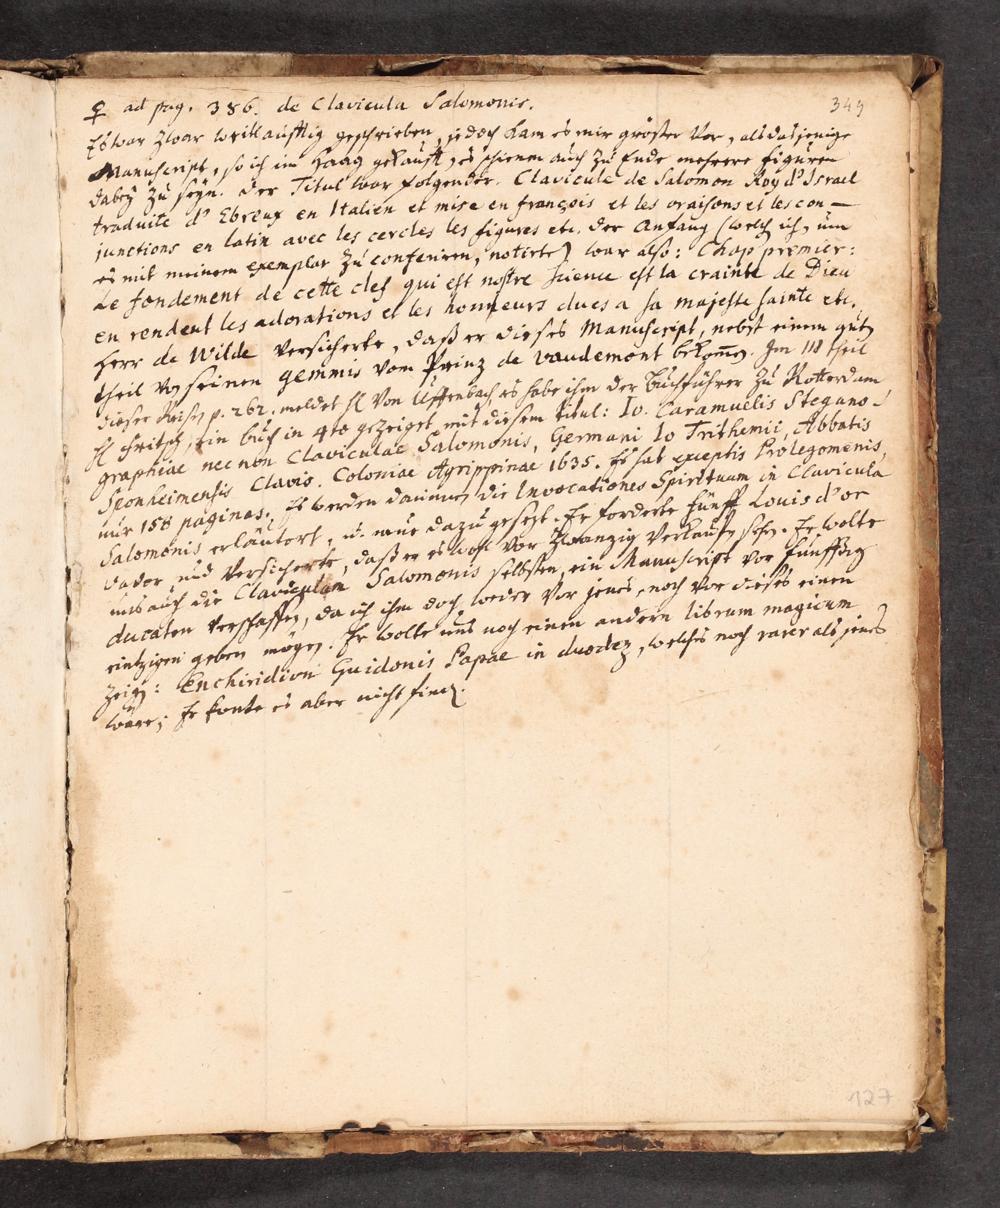 ♀ ad pag. 386. de Clavicula Salomonis. 349
Es war zwar weitläufftig geschrieben, jedoch kam es mir größer vor, als dasjenige
Manuscript, so ich im Haag gekaufft, es schienen auch zu Ende mehrere figuren
dabey zu seyn. Der Titul war folgender. Clavicule de Salomon Roy d'Israel
traduite d'Ebreux en Italien et mise en françois et les oraisons et les con-
junctions en latin avec les cercles les figures etc. Der Anfang (welch ich, um
es mit meinem exemplar zu conferiren, notirte) war also: Chap premier:
Le fondement de cette clef qui est nostre science est la crainte de Dieu
en rendent les adorations et les honneurs dues a sa majeste sainte etc.
Herr de Wilde versicherte, daß er dieses Manuscript, nebst einem gutē
theil von seinen gemmis vom Prinz de Vaudemont bekom̄en. Im III theil
dieser Reisen p. 262. meldet H. von Uffenbach, es habe ihm der Buchführer zu Rotterdam
H. Fritsch, ein buch in 4to gezeiget mit diesem titul: Io. Caramuelis Stegano-
graphiae nec non Claviculae Salomonis, Germani Io Trithemii, Abbatis
Sponheimensis Clavis. Coloniae Agrippinae 1635. Es hat exceptis Prolegomenis,
nur 158 paginas. Es werden darinnen die Invocationes Spirituum in Clavicula
Salomonis erläutert, u. neue dazu gesetzt. Er forderte fünff Louis d'or
davor, und versicherte, daß er es wohl vor zwanzig verkaufft hätte. Er wolte
uns auch die Claviculam Salomonis selbsten, ein Manuscript vor fünffzig
ducaten verschaffen, da ich ihm doch weder vor jenes, noch vor dieses einen
eintzigen geben mögen. Er wolte uns noch einen andern librum magicum
zeigen: Enchiridion Guidonis Papae in duodez, welches noch rarer als jenes
wäre; Er konte es aber nicht finden.
127